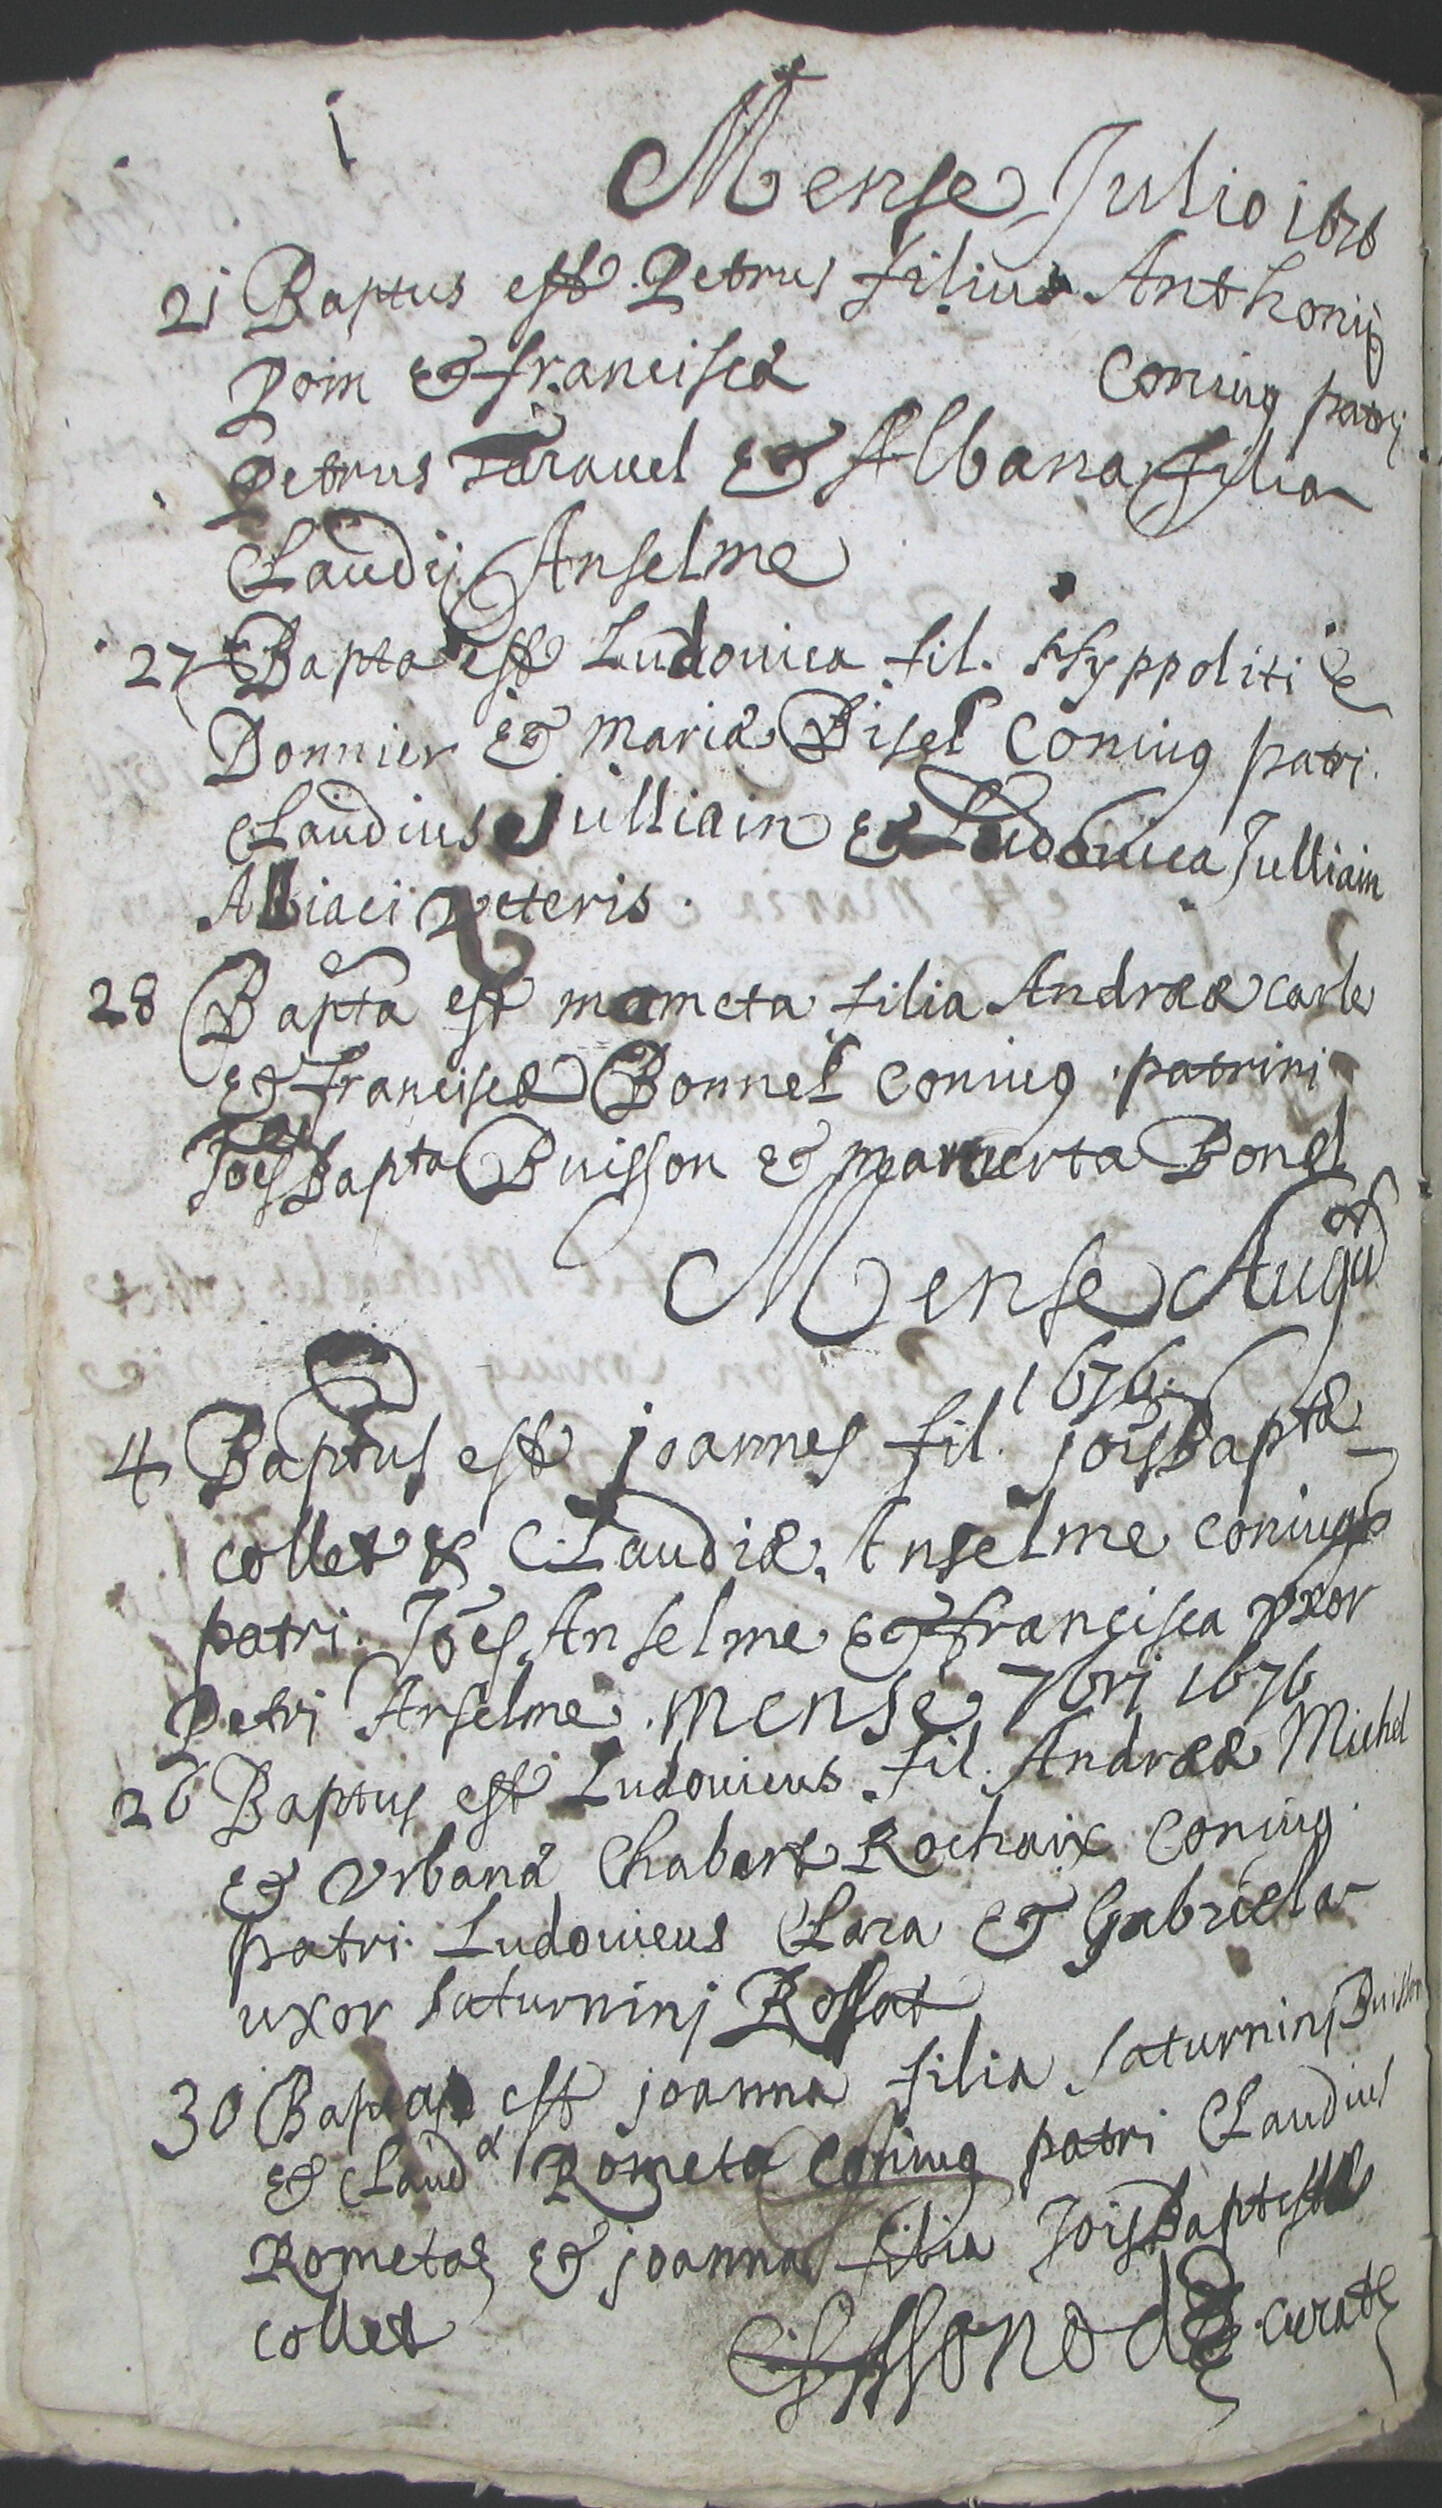 i
Mense Julio 1676
21 Baptus est Petrus filius Anthonij
Poin & franciscæ Coniug patri
Petrus Taravel & Albana filia
Claudij Anselme
27 Bapta est Ludovica fil. Hyppoliti
Donnier & mariæ Bisel Coniug patri.
Claudius Julliain & Ludovica Julliain
Albiaci veteris.
28 Bapta est mameta filia Andreæ carle
& franciscæ Bonnel coniug patrini
Joes Bapta Buisson & mamerta Bonel
Mense Augu
1676.
4 Baptus est joannes fil. jois Baptæ
collet & Claudiæ Anselme coniug
patri. Joes Anselme & francisca vxor
Petri Anselme. mense 7bri 1676
26 Baptus est Ludovicus fil. Andreæ Michel
& Vrbanæ Chabert Rochaix Coniug.
patri. Ludovicus Clara & Gabriela
uxor saturninj Rossat
30 Bapta est joanna filia saturninj Buisson
& Claudæ Rometa coniug patri Claudius
Rometa & joanna filia Jois Baptistæ
collet
curat